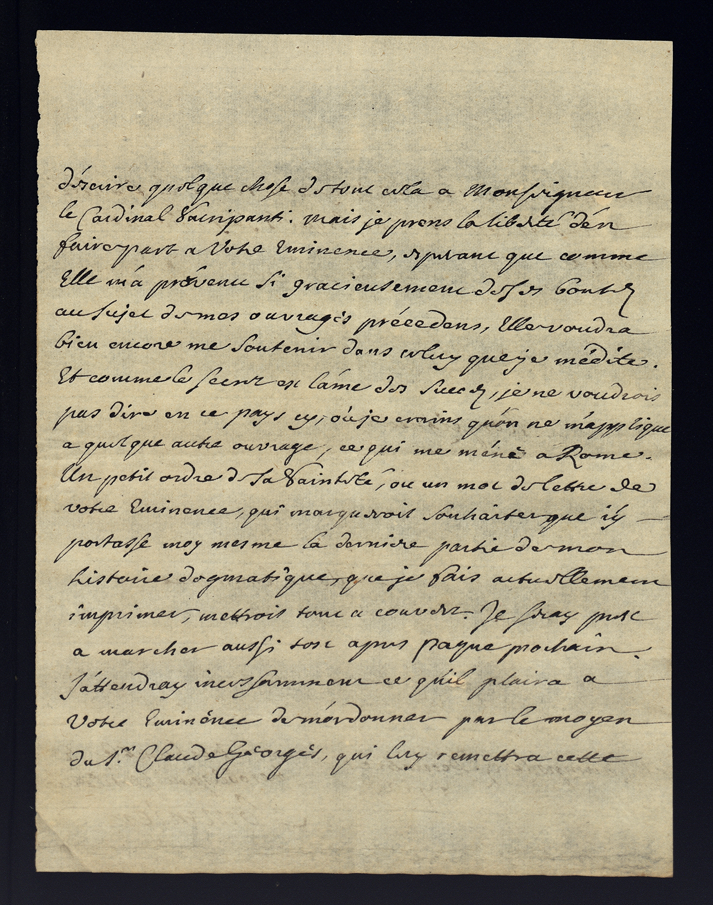 d'écrire quelque chose de tout cela a Monseigneur
le Cardinal Sacripanti. mais je prens la liberté d'en
faire part a Votre Eminence, esperant que comme
Elle m'a prévenu si gracieusement de ses bontez
au sujet de mes ouvrages précedens, Elle voudra
bien encore me soutenir dans celuy que je médite.
Et comme le secret est l'ame des succez, je ne voudrois
pas dire en ce pays cy, où je crains qu'on ne m'applique
a quelque autre ouvrage, ce qui me méne a Rome.
Un petit ordre de sa Sainteté, ou un mot de lettre de
votre Eminence, qui marqueroit souhaiter que j'y
portasse moy mesme la derniere partie de mon
histoire dogmatique, que je fais actuellement
imprimer, mettroit tout a couvert. Je seray prest
a marcher aussi tost apres Paque prochain.
J'attendray incessamment ce qu'il plaira a
Votre Eminence de m'ordonner par le moyen
du Sr. Claude Georges, qui luy remettra cette